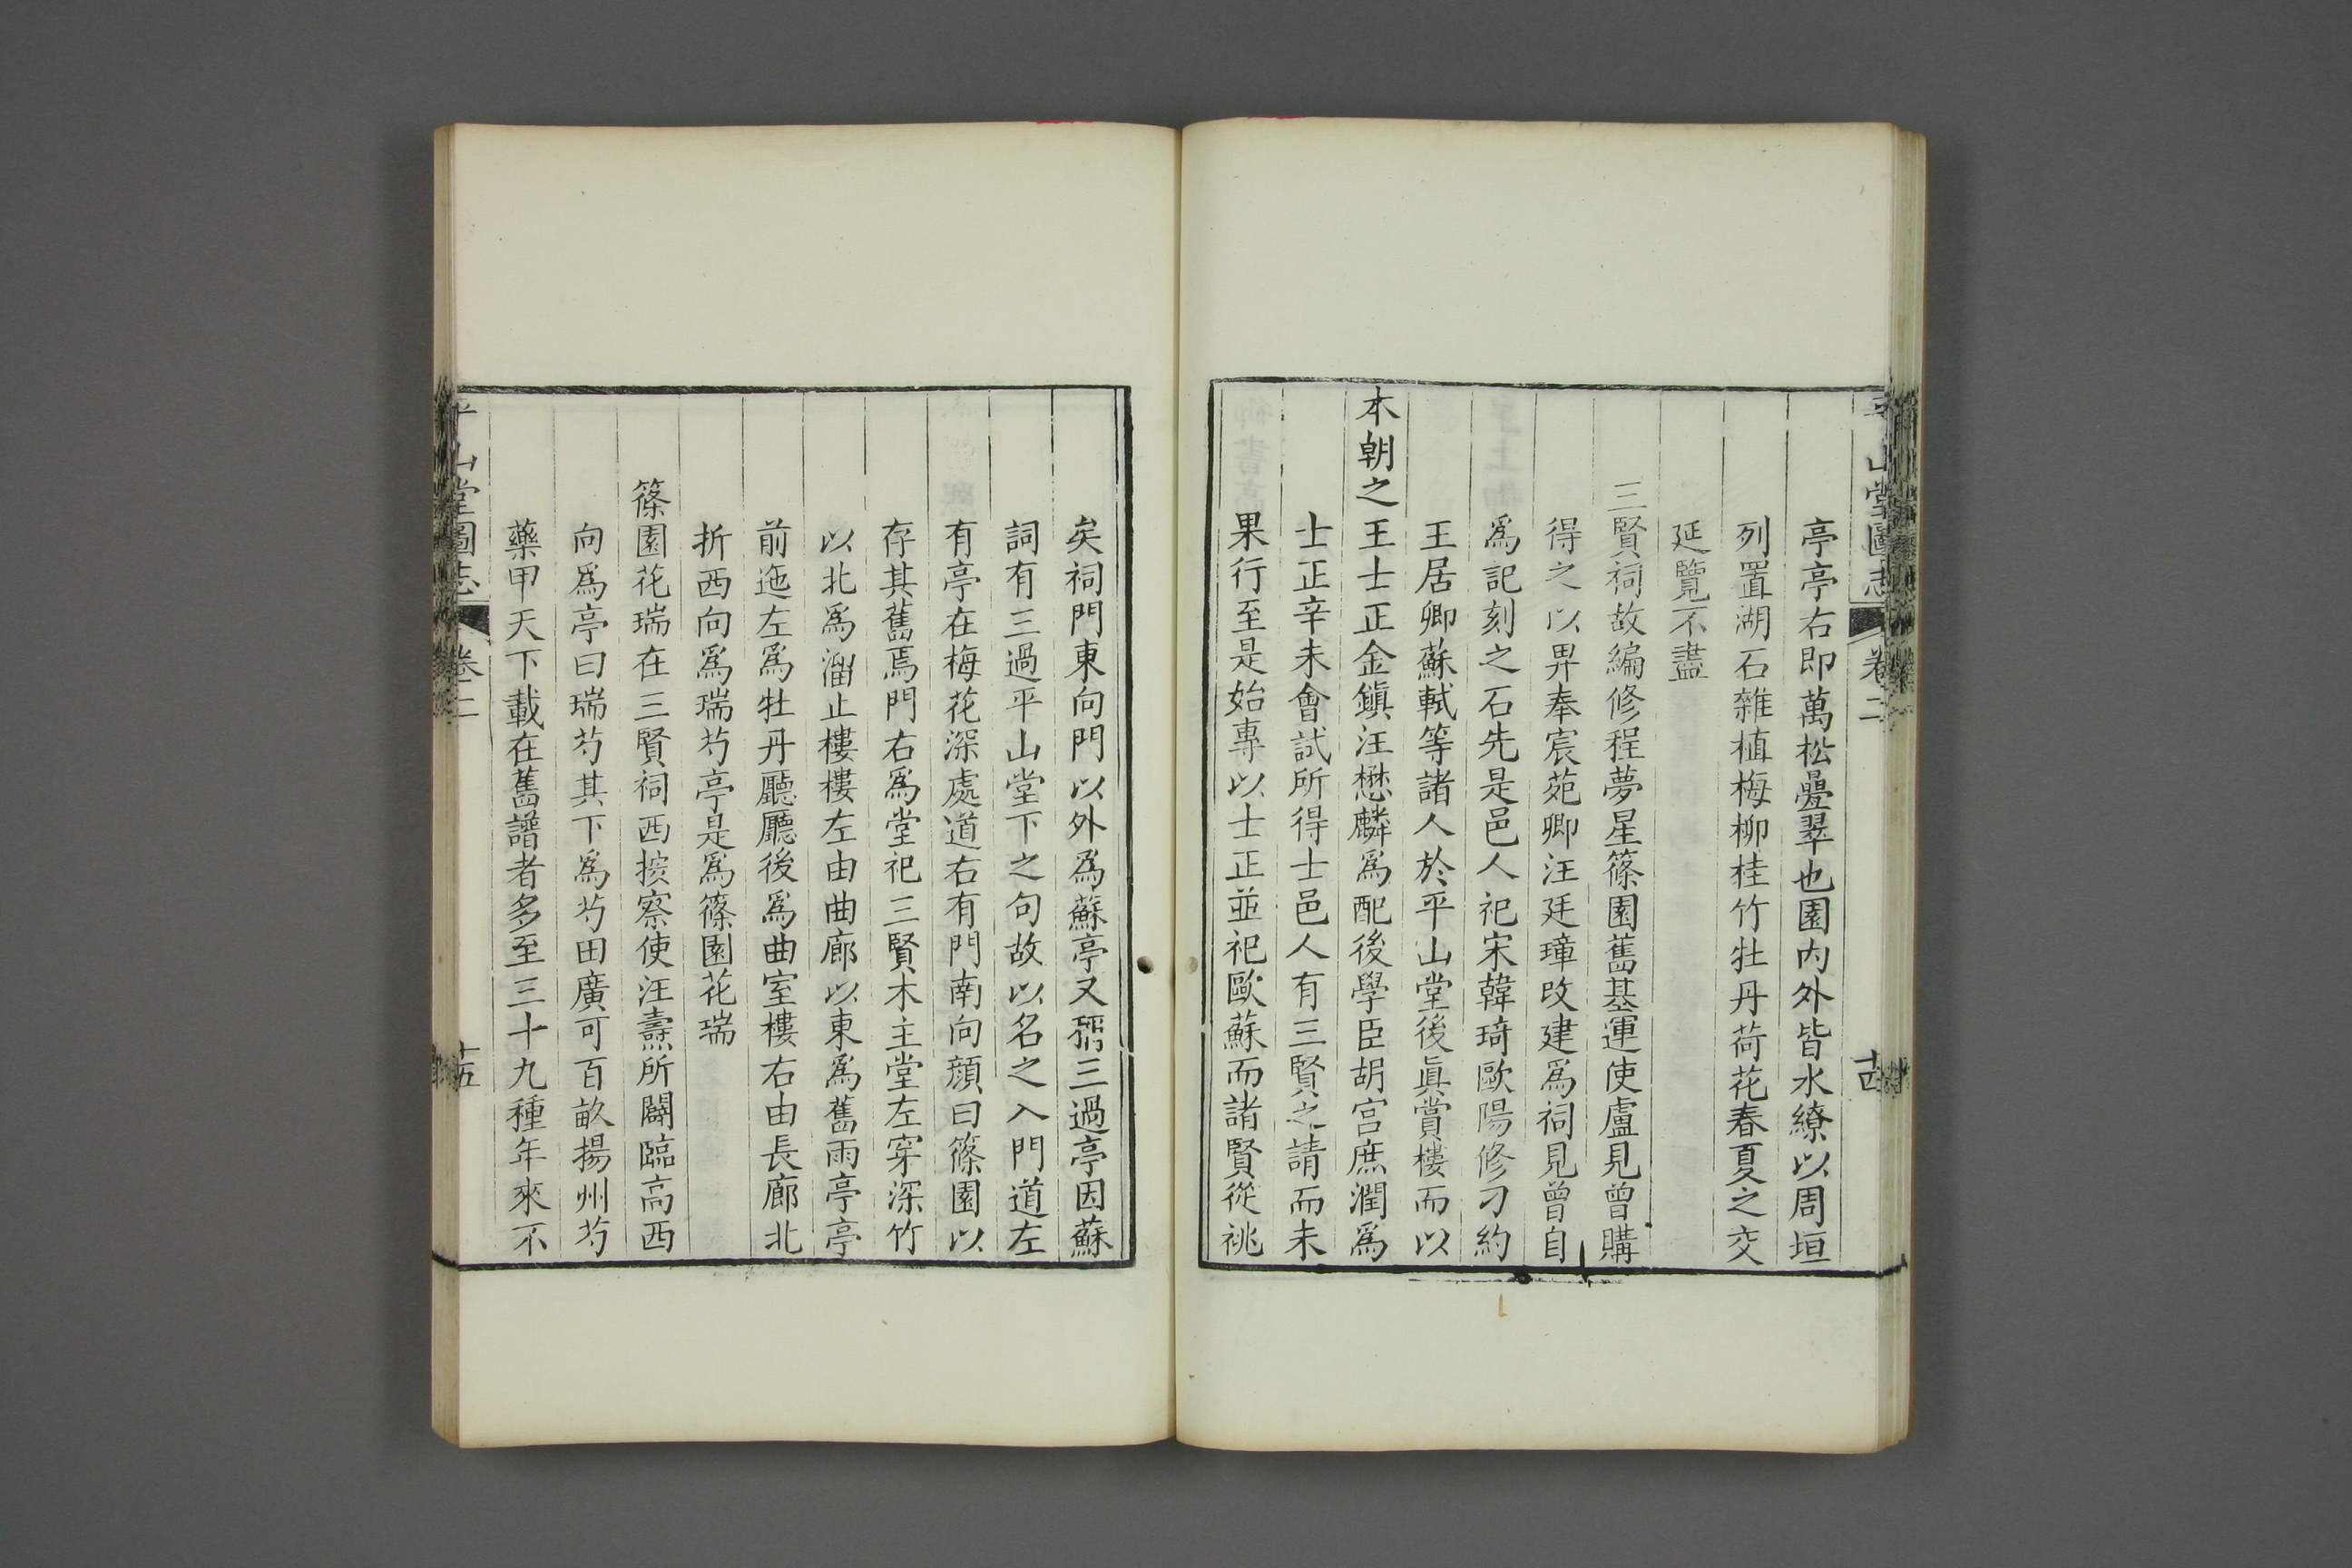 亭亭右即萬松疊翠也園内外皆水繚以周垣
列置湖石雜植梅柳桂竹牡丹荷花春夏之交
延覽不盡
三賢祠故編修程夢星篠園舊基運使盧見曾購
得之以畀奉宸苑卿汪廷璋改建爲祠見曾自
爲記刻之石先是邑人祀宋韓琦歐陽修刁約
王居卿蘇軾等諸人於平山堂後眞賞樓而以
本朝之王士正金鎮汪懋麟爲配後學臣胡宫庶潤爲
士正辛未會試所得士邑人有三賢之請而未
果行至是始專以士正並祀歐蘇而諸賢從祧
平山堂圖志 卷二 十四
矣祠門東向門以外爲蘇亭又稱三過亭因蘇
詞有三過平山堂下之句故以名之入門道左
有亭在梅花深處道右有門南向顔曰篠園以
存其舊焉門右爲堂祀三賢木主堂左穿深竹
以北爲溜止樓樓左由曲廊以東爲舊雨亭亭
前迤左爲牡丹廳廳後爲曲室樓右由長廊北
折西向爲瑞芍亭是爲篠園花瑞
篠園花瑞在三賢祠西按察使汪燾所闢臨高西
向爲亭曰瑞芍其下爲芍田廣可百畝揚州芍
藥甲天下載在舊譜者多至三十九種年來不
平山堂圖志 卷二 十五